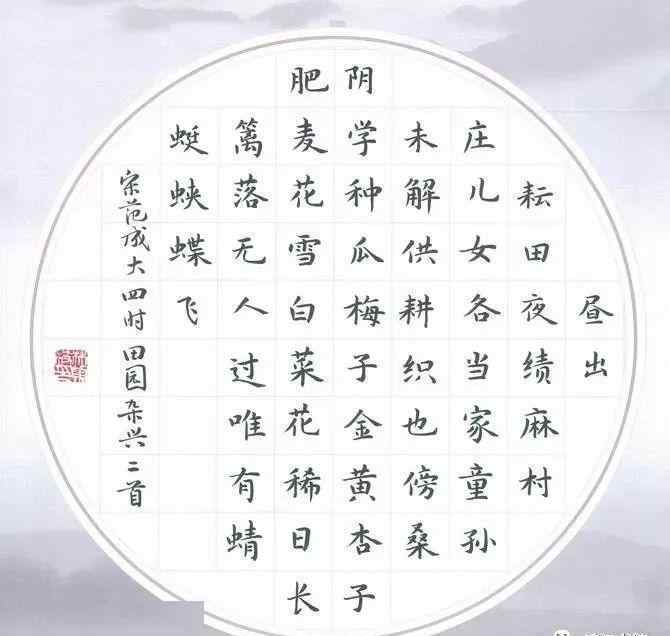 昼出
耘田夜绩麻村
庄儿女各当家童孙
未解供耕织也傍桑
阴学种瓜梅子金黄杏子
肥麦花雪白菜花稀日长
篱落无人过唯有蜻
蜓蛱蝶飞
宋范成大四时田园杂兴二首